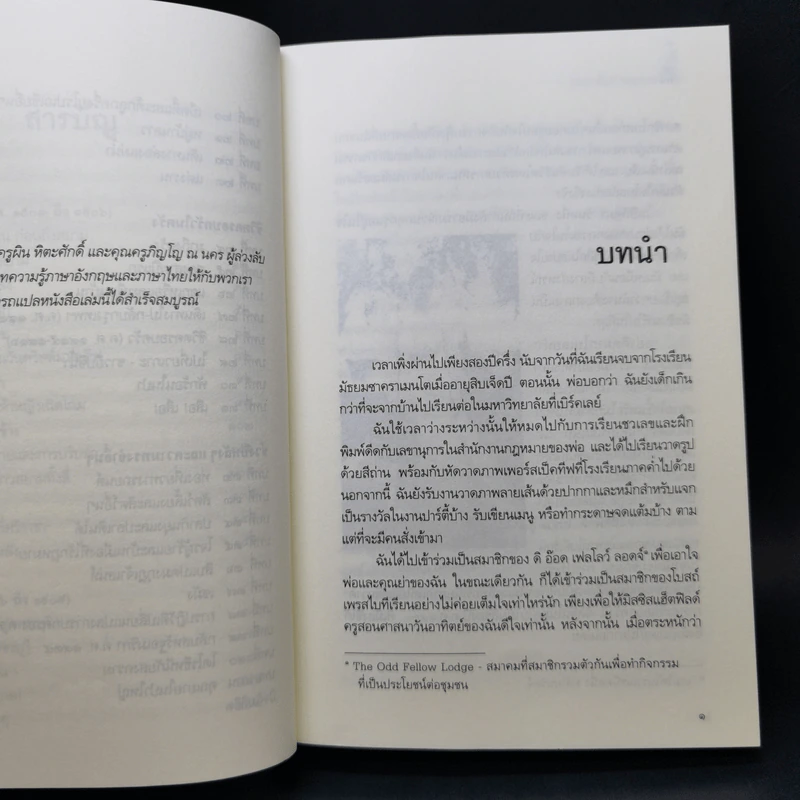 ครูผิน หิตะศักดิ์ และคุณครูภิญโญ ณ นคร ผู้ล่วงลับ
ทความรู้ภาษาอังกฤษและภาษาไทยให้กับพวกเรา
รถแปลหนังสือเล่มนี้ได้สำเร็จสมบูรณ์
บทนำ
เวลาเพิ่งผ่านไปเพียงสองปีครึ่ง นับจากวันที่ฉันเรียนจบจากโรงเรียน
มัธยมซาคราเมนโตเมื่ออายุสิบเจ็ดปี ตอนนั้น พ่อบอกว่า ฉันยังเด็กเกิน
กว่าที่จะจากบ้านไปเรียนต่อในมหาวิทยาลัยที่เบิร์คเลย์
ฉันใช้เวลาว่างระหว่างนั้นให้หมดไปกับการเรียนชวเลขและฝึก
พิมพ์ดีดกับเลขานุการในสำนักงานกฎหมายของพ่อ และได้ไปเรียนวาดรูป
ด้วยสีถ่าน พร้อมกับหัดวาดภาพเพอร์สเป็คทีฟที่โรงเรียนภาคค่ำไปด้วย
นอกจากนี้ ฉันยังรับงานวาดภาพลายเส้นด้วยปากกาและหมึกสำหรับแจก
เป็นรางวัลในงานปาร์ตี้บ้าง รับเขียนเมนู หรือทำกระดาษจดแต้มบ้าง ตาม
แต่ที่จะมีคนสั่งเข้ามา
ฉันได้ไปเข้าร่วมเป็นสมาชิกของ ดิ อ๊อด เฟลโลว์ ลอดจ์* เพื่อเอาใจ
พ่อและคุณย่าของฉัน ในขณะเดียวกัน ก็ได้เข้าร่วมเป็นสมาชิกของโบสถ์
เพรสไบทีเรียนอย่างไม่ค่อยเต็มใจเท่าไหร่นัก เพียงเพื่อให้มิสซิสแฮ็ตฟิลด์
ครูสอนศาสนาวันอาทิตย์ของฉันดีใจเท่านั้น หลังจากนั้น เมื่อตระหนักว่า
* The Odd Fellow Lodge - สมาคมที่สมาชิกรวมตัวกันเพื่อทำกิจกรรม
ที่เป็นประโยชน์ต่อชุมชน
๑